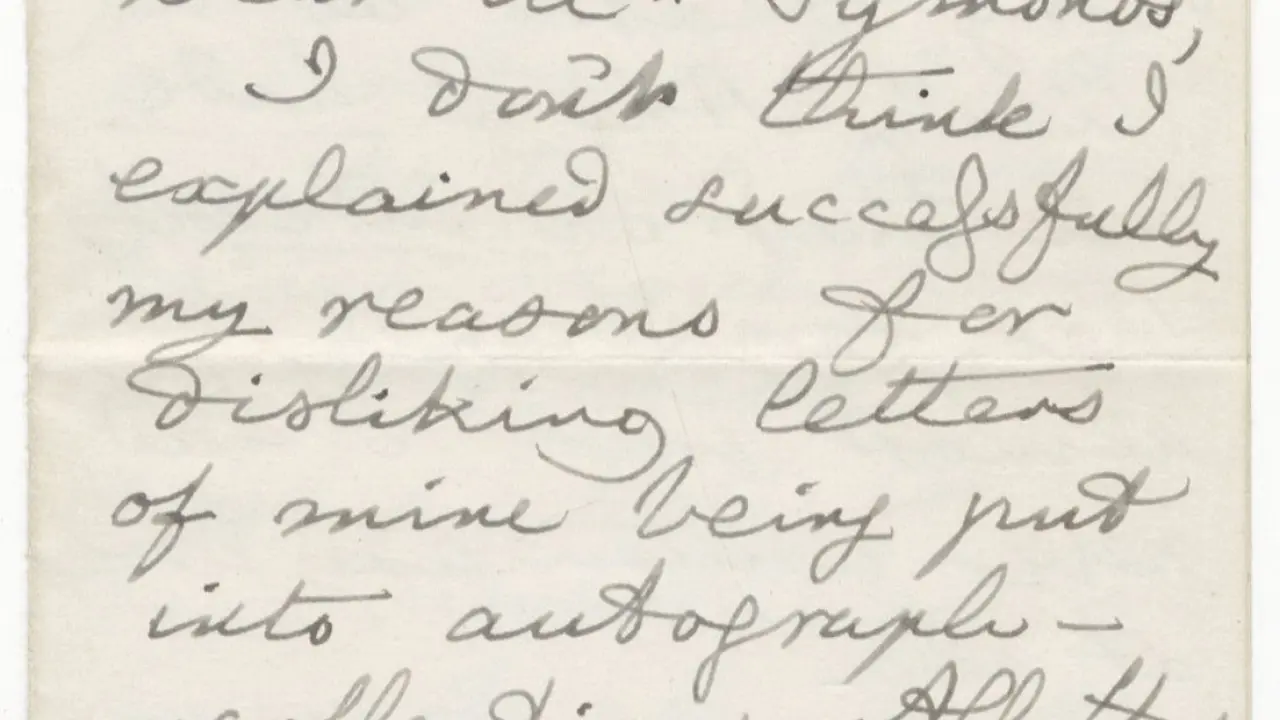 Symonds,
I don't think I
explained successfully
my reasons for
disliking letters
of mine being put
into autograph-